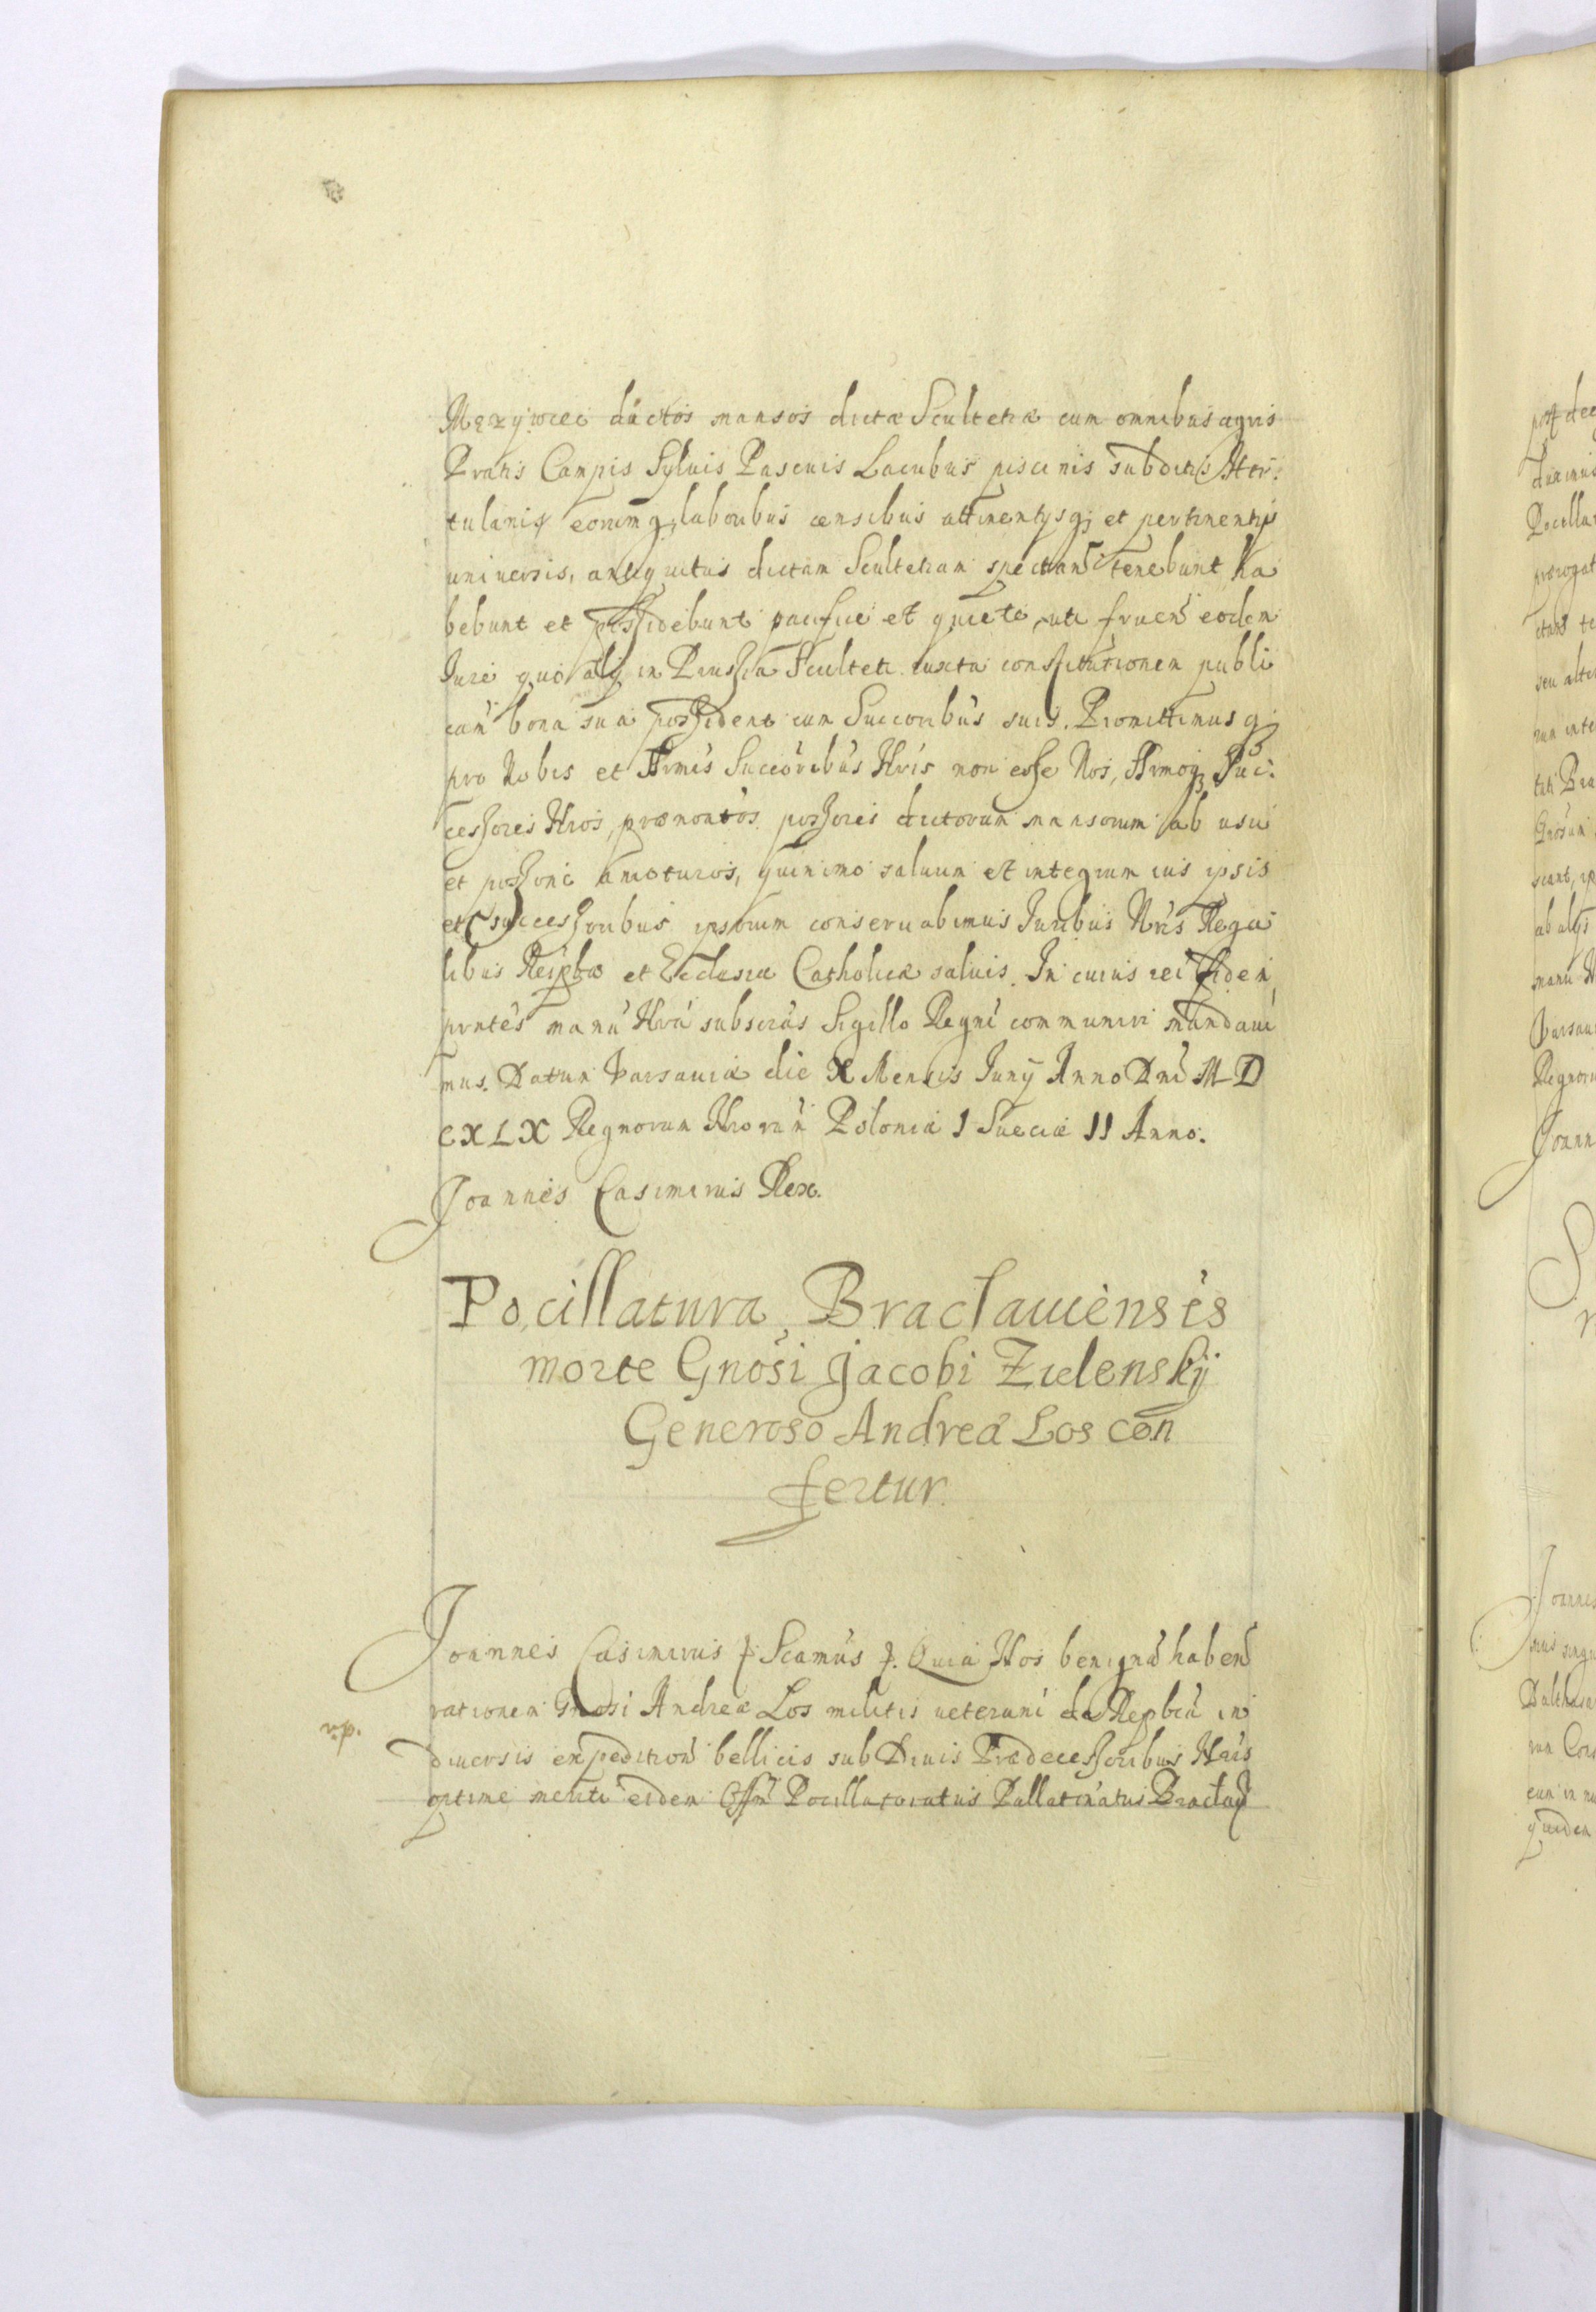 Mężywiec dictos mansos dictæ Scultetiæ cum omnibus agris
Pratis Campis Syluis Pascuis Lacubus piscinis subditis Hor:
tulanis eorumq; laboribus censibus attinentijsq; et pertinentijs
uniuersis, antiquitus dictam Scultetiam spectan tenebunt ha
bebunt et possidebunt pacifice et quiete, uti fruen eodem
Jure quo alij in Prussia Sculteti iuxta constitutionem publi
cam bona sua possident cum Succoribus suis. Promittimusq;
pro Nobis et Srmis Succoribus Nris non esse Nos, Srmosq; Suc:
cessores Nros, prænontos possores dictorum mansorum ab usu
et possone amoturos, quinimo saluum et integrum ius ipsis
et successoribus ipsorum conseruabimus Juribus Nris Rega
libus Reiptæ et Ecclesiæ Catholicæ saluis. In cuius rei fidem
pntes manu Nra subscras Sigillo Regni communiri mandaui
mus. Datum Varsauiæ die X Mensis Junij Anno Dni M D
CXLX Regnorum Nrorum Poloniæ I Sueciæ II Anno.
Joannes Casimirus Rex.
Pocillatura Braclauiensis
morte Gnosi Jacobi Zielenskij
Generoso Andreæ Los con
fertur.
Joannes Casimirus p. Scamus p. Quia Nos benignã haben
rationem Gnosi Andreæ Los militis ueterani de Repbca in
v.p.
diuersis expedition bellicis sub Diuis Prædecessoribus Nris
optime meriti eidem Offm Pocillatoratus Pallatinatus Braclau